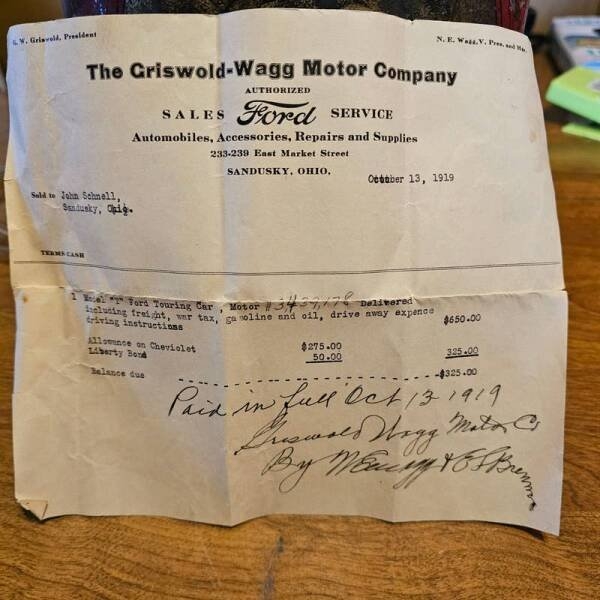 G. W. Griswold, President
N. E. Wagg, V. Pres. and Mgr.
The Griswold-Wagg Motor Company
AUTHORIZED
SALES Ford SERVICE
Automobiles, Accessories, Repairs and Supplies
233-239 East Market Street
SANDUSKY, OHIO,
October 13, 1919
Sold to John Schnell,
Sandusky, Ohio.
TERMS CASH
1 Model "T" Ford Touring Car , Motor # 3439,178 Delivered
including freight, war tax, gasoline and oil, drive away expence
driving instructions $650.00
Allowance on Cheviolet $275.00
Liberty Bond 50.00 325.00
Balance due - - - - - - - - - - - - - - - -$325.00
Paid in full Oct 13 1919
Griswold Wagg Motor Co
By